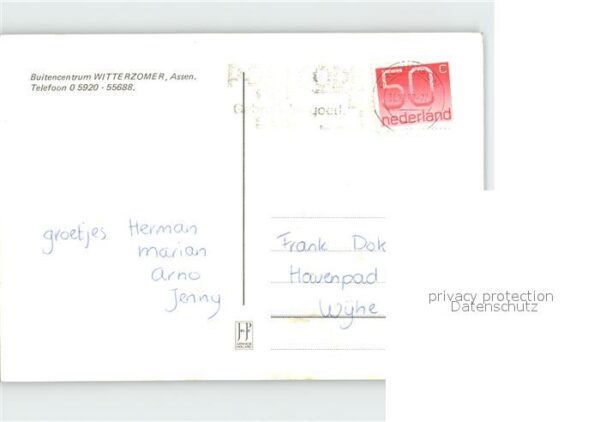 Buitencentrum WITTERZOMER, Assen.
Telefoon 0 5920 - 55688.
50 c
nederland
groetjes Herman
marian
Arno
Jenny
Frank Dok
Havenpad
Wijhe
privacy protection
Datenschutz